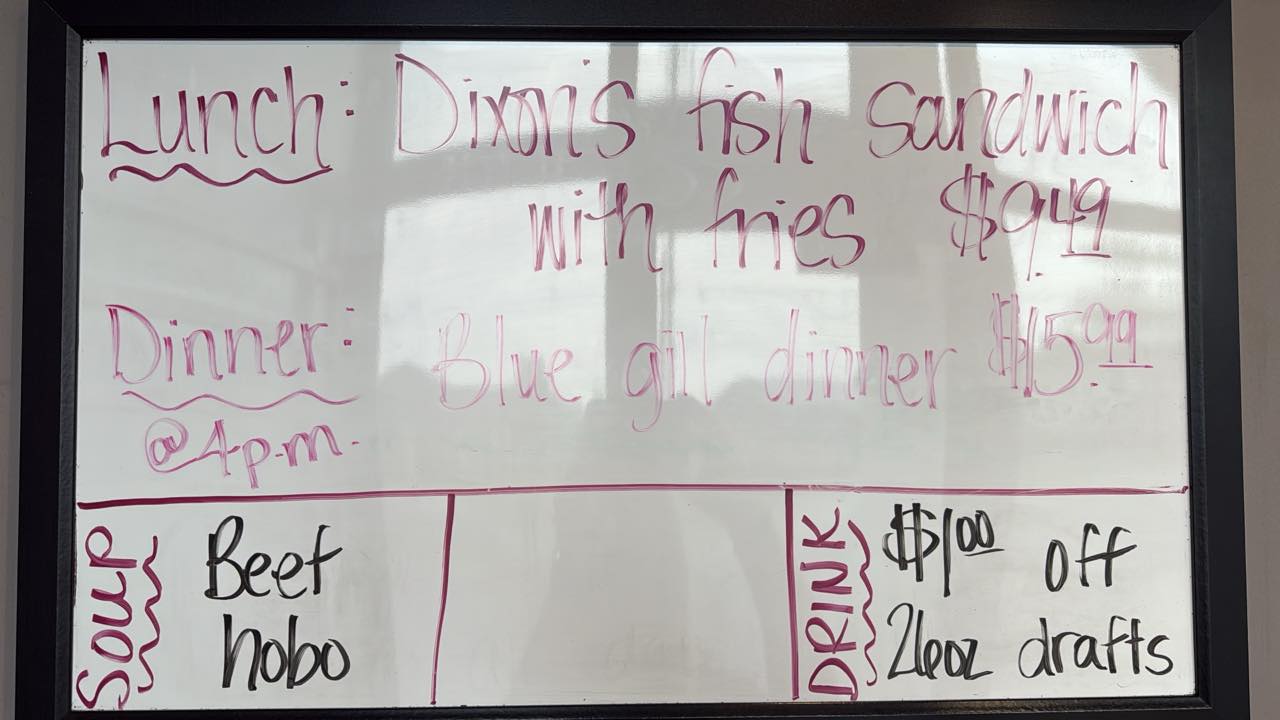 Lunch: Dixon's fish sandwich
with fries $9.49
Dinner: Blue gill dinner $15.99
@4p.m.
SOUP
Beef
hobo
DRINK
$1.00 off
26oz drafts